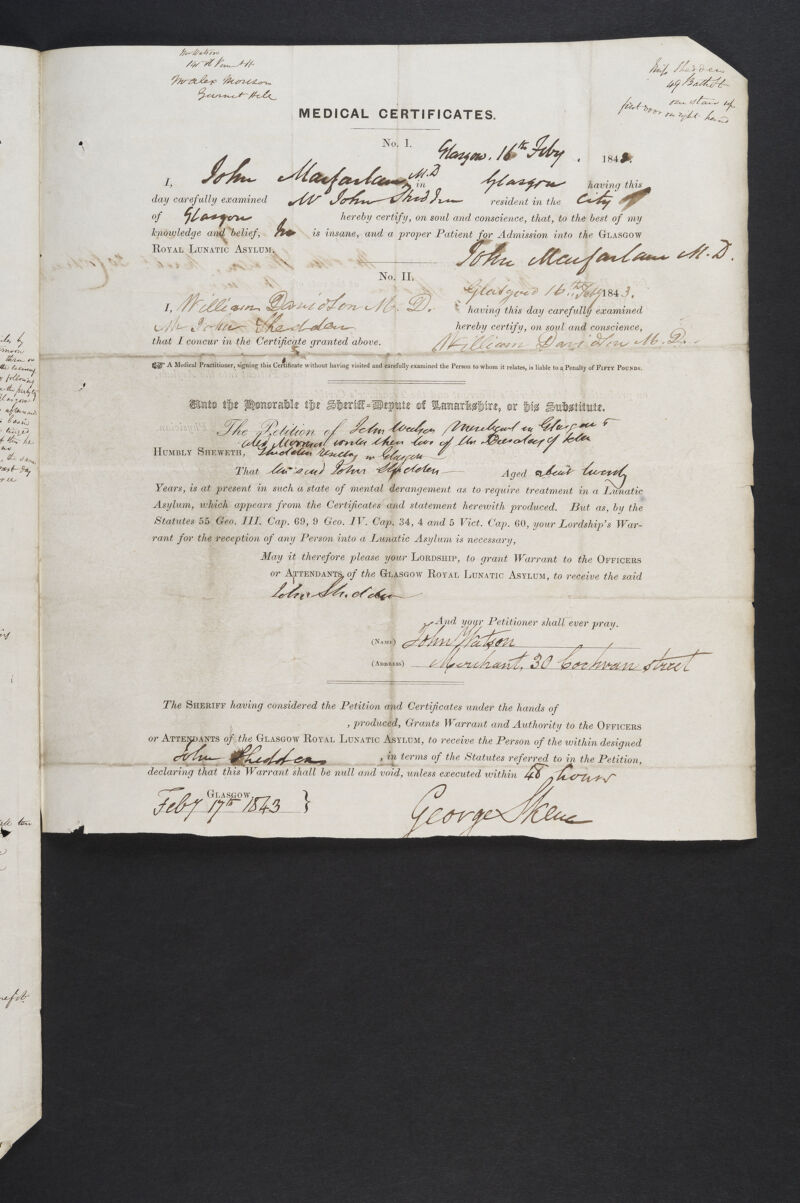 Mr Watson
Mr Alex Morison
Garnet Hill
Miss Shedden
49 Bath St
one stair up
first door on right hand
MEDICAL CERTIFICATES.
No. I.
Glasgow. 16th Feby. 1843.
I, John Macfarlane M.D in Glasgow having this
day carefully examined Mr John Shedden resident in the City
of Glasgow hereby certify, on soul and conscience, that, to the best of my
knowledge and belief, he is insane, and a proper Patient for Admission into the GLASGOW
ROYAL LUNATIC ASYLUM.
John Macfarlane M.D.
No. II.
Glasgow 16th Feby 1843.
I, William Davidson M.D. having this day carefully examined
Mr John Shedden hereby certify, on soul and conscience,
that I concur in the Certificate granted above.
William Davidson M.D.
☞ A Medical Practitioner, signing this Certificate without having visited and carefully examined the Person to whom it relates, is liable to a Penalty of FIFTY POUNDS.
Unto the Honorable the Sheriff-Depute of Lanarkshire, or his Substitute.
The Petition of John Watson Merchant in Glasgow &
Alex Morison writer there two of the of John
HUMBLY SHEWETH, Shedden residing in Glasgow
That the said John Shedden Aged about twenty
Years, is at present in such a state of mental derangement as to require treatment in a Lunatic
Asylum, which appears from the Certificates and statement herewith produced. But as, by the
Statutes 55 Geo. III. Cap. 69, 9 Geo. IV. Cap. 34, 4 and 5 Vict. Cap. 60, your Lordship's War-
rant for the reception of any Person into a Lunatic Asylum is necessary,
May it therefore please your LORDSHIP, to grant Warrant to the OFFICERS
or ATTENDANTS of the GLASGOW ROYAL LUNATIC ASYLUM, to receive the said
John Shedden
And your Petitioner shall ever pray.
(NAME) John Watson
(ADDRESS) Merchant, 30 Cochran Street
The SHERIFF having considered the Petition and Certificates under the hands of
, produced, Grants Warrant and Authority to the OFFICERS
or ATTENDANTS of the GLASGOW ROYAL LUNATIC ASYLUM, to receive the Person of the within designed
John Shedden , in terms of the Statutes referred to in the Petition,
declaring that this Warrant shall be null and void, unless executed within 48 hours
GLASGOW
Feby 17th 1843 }
George Skene